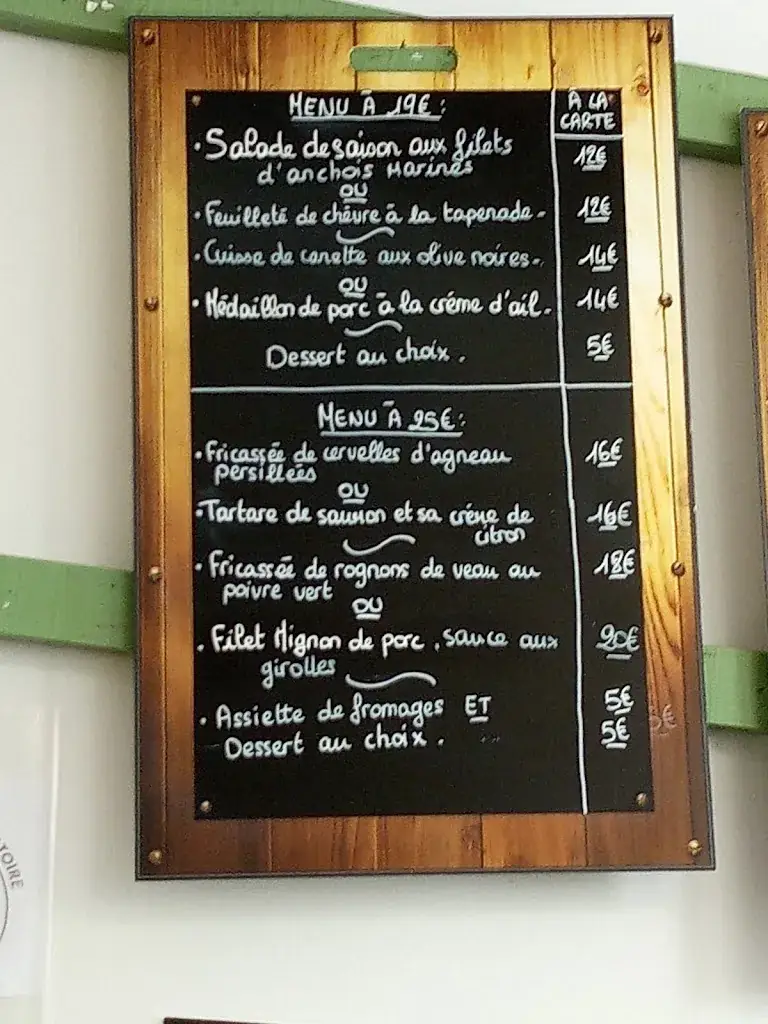 MENU À 19€ :
À LA
CARTE
• Salade de saison aux filets 12€
d'anchois Marinés
OU
• Feuilleté de chèvre à la tapenade. 12€
• Cuisse de canette aux olive noires. 14€
OU
• Médaillon de porc à la crème d'ail. 14€
Dessert au choix. 5€
MENU À 25€ :
• Fricassée de cervelles d'agneau 16€
persillées
OU
• Tartare de saumon et sa crème de 16€
citron
• Fricassée de rognons de veau au 18€
poivre vert
OU
• Filet Mignon de porc, sauce aux 20€
girolles
• Assiette de fromages ET 5€
Dessert au choix. 5€
5€
TOIRE